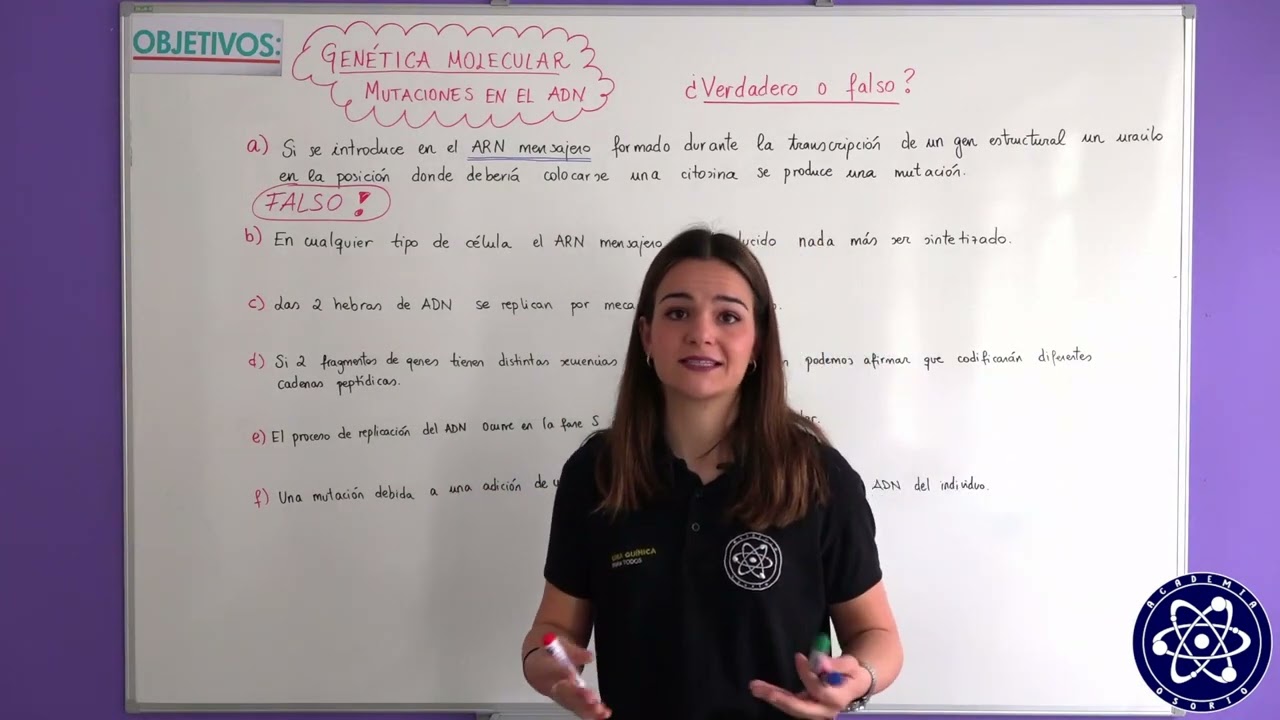 OBJETIVOS:
GENÉTICA MOLECULAR
MUTACIONES EN EL ADN
¿Verdadero o falso?
a) Si se introduce en el ARN mensajero formado durante la transcripción de un gen estructural un uracilo
en la posición donde deberiá colocarse una citosina se produce una mutación.
FALSO!
b) En cualquier tipo de célula el ARN mensajero nada más ser sintetizado.
c) Las 2 hebras de ADN se replican por
d) Si 2 fragmentos de genes tienen distintas secuencias podemos afirmar que codificarán diferentes
cadenas peptídicas.
e) El proceso de replicación del ADN ocurre en la fase S
f) Una mutación debida a una adición de ADN del individuo.
QUÍMICA
PARA TODOS
ACADEMIA
OSORIO